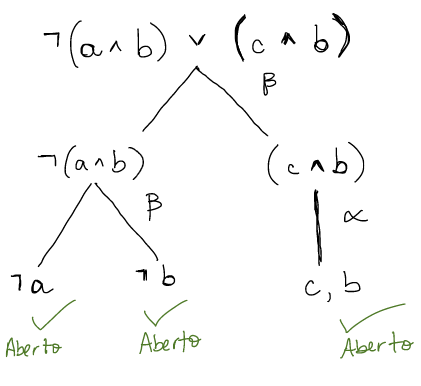 ¬(a ∧ b) ∨ (c ∧ b)
β
¬(a ∧ b) (c ∧ b)
β α
¬a ¬b c, b
Aberto Aberto Aberto